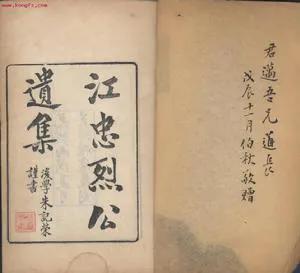 www.kongfz.com
江忠烈公
遺集
後學朱記榮
謹書
君邁吾兄
戊辰十一月伯秋敬贈